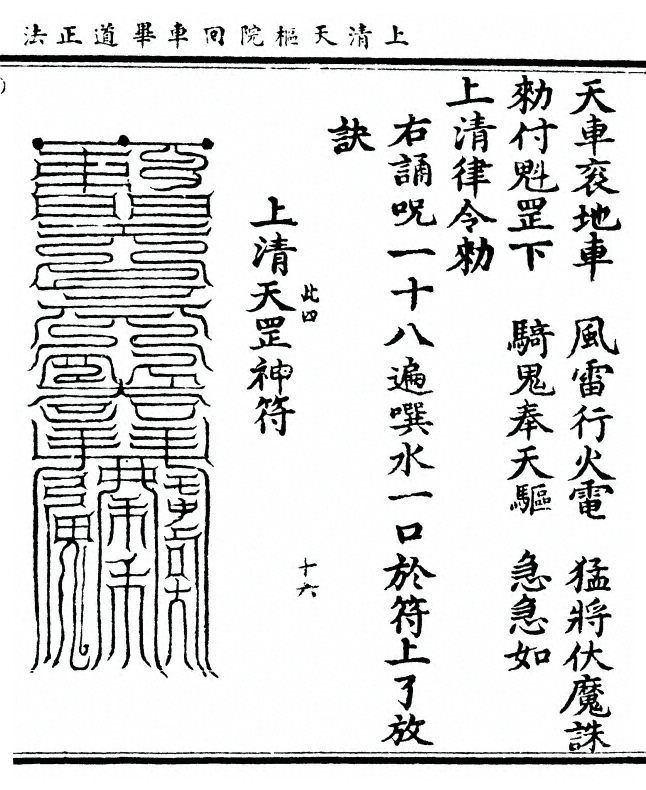 上清天樞院回車畢道正法
天車衮地車　風雷行火電　猛將伏魔誅
勑付魁罡下　騎鬼奉天驅　急急如
上清律令勑
右誦咒一十八遍噀水一口於符上了放
訣
此四
十六
上清天罡神符